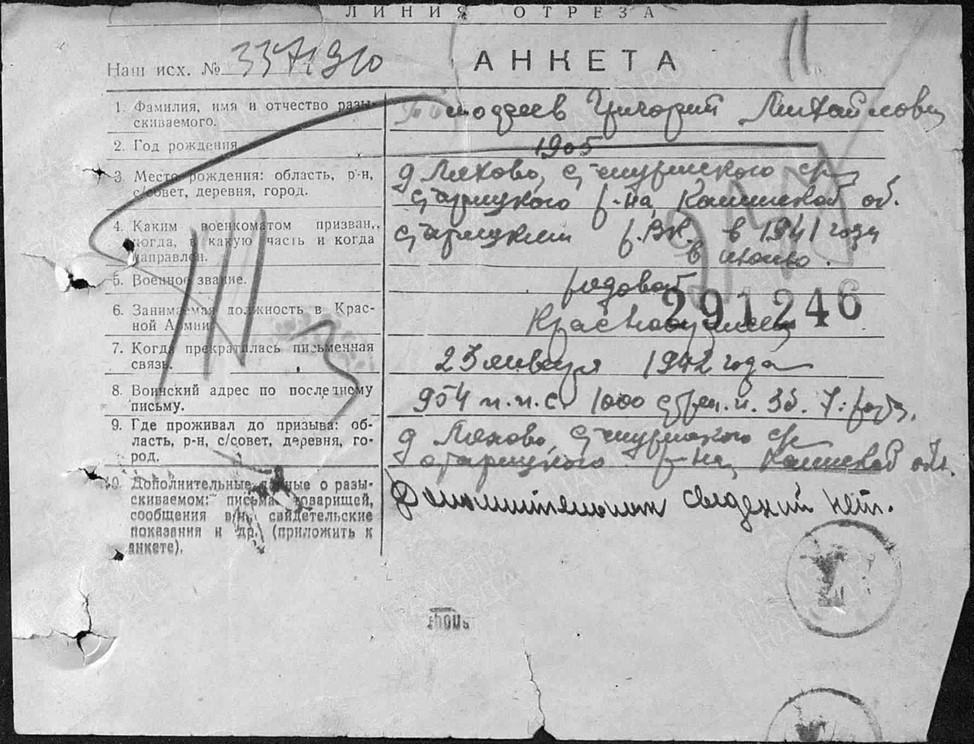 ЛИНИЯ ОТРЕЗА
Наш исх. № 3371910
АНКЕТА
11
1. Фамилия, имя и отчество разы-
скиваемого.
Григорий Михайлович
2. Год рождения
1905
3. Место рождения: область, р-н,
с/совет, деревня, город.
д Ляхово,
Старицкого р-на, Калининской об.
4. Каким военкоматом призван,
когда, в какую часть и когда
направлен.
Старицким р.ВК в 1941 году
в июню.
5. Военное звание.
рядовой
291246
6. Занимаемая должность в Крас-
ной Армии
Красноармеец
7. Когда прекратилась письменная
связь.
23 января 1942 года
8. Воинский адрес по последнему
письму.
954 п.п.с. 1000 стрел. п. 3б. 7. рота.
9. Где проживал до призыва: об-
ласть, р-н, с/совет, деревня, го-
род.
д Ляхово,
Старицкого р-на,
10. Дополнительные данные о разы-
скиваемом: письма товарищей,
сообщения в/ч, свидетельские
показания и др. (приложить к
анкете).
сведений нет.